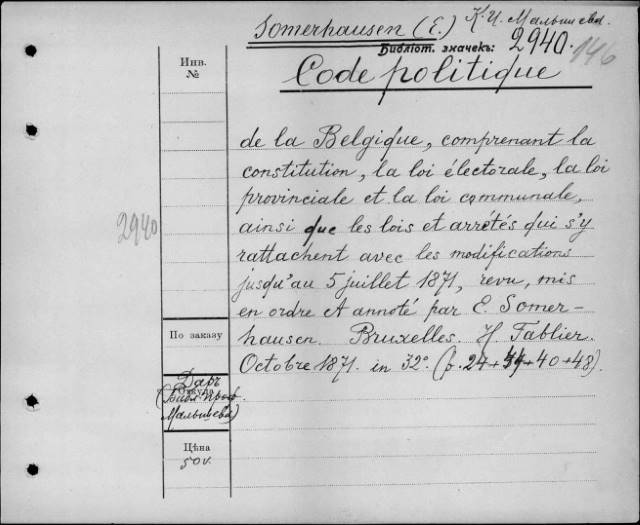 Somerhausen (E.) К. И. Малышева.
Библіот. значекъ: 2940.
146
Инв.
№
Code politique
de la Belgique, comprenant la
constitution, la loi électorale, la loi
provinciale et la loi communale,
ainsi que les lois et arrêtés qui s'y
2940
rattachent avec les modifications
jusqu'au 5 juillet 1871, revu, mis
en ordre et annoté par E. Somer-
По заказу
hausen. Bruxelles. H. Tablier.
Octobre 1871. in 32°. (p. 24+ +40+48).
Даръ
Откуда
(Библ. проф.
Малышева)
Цѣна
50